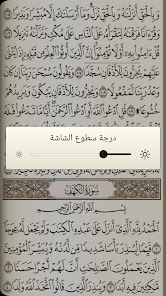 وَبِالْحَقِّ أَنزَلْنَاهُ وَبِالْحَقِّ نَزَلَ وَمَا أَرْسَلْنَاكَ إِلَّا مُبَشِّرًا وَنَذِيرًا ١٠٥
وَقُرْآنًا فَرَقْنَاهُ لِتَقْرَأَهُ عَلَى النَّاسِ عَلَىٰ مُكْثٍ وَنَزَّلْنَاهُ تَنزِيلًا ١٠٦
قُلْ آمِنُوا بِهِ أَوْ لَا تُؤْمِنُوا إِنَّ الَّذِينَ أُوتُوا الْعِلْمَ مِن قَبْلِهِ إِذَا يُتْلَىٰ
عَلَيْهِمْ يَخِرُّونَ لِلْأَذْقَانِ سُجَّدًا ١٠٧ وَيَقُولُونَ سُبْحَانَ رَبِّنَا إِن كَانَ
وَعْدُ رَبِّنَا لَمَفْعُولًا ١٠٨ وَيَخِرُّونَ لِلْأَذْقَانِ يَبْكُونَ وَيَزِيدُهُمْ
خُشُوعًا ۩ ١٠٩ قُلِ ادْعُوا اللَّهَ أَوِ ادْعُوا الرَّحْمَٰنَ أَيًّا مَّا تَدْعُوا فَلَهُ
درجة سطوع الشاشة
سُورَةُ الكَهْفِ
بِسْمِ اللَّهِ الرَّحْمَٰنِ الرَّحِيمِ
الْحَمْدُ لِلَّهِ الَّذِي أَنزَلَ عَلَىٰ عَبْدِهِ الْكِتَابَ وَلَمْ يَجْعَل لَّهُ عِوَجًا ١
قَيِّمًا لِّيُنذِرَ بَأْسًا شَدِيدًا مِّن لَّدُنْهُ وَيُبَشِّرَ الْمُؤْمِنِينَ
الَّذِينَ يَعْمَلُونَ الصَّالِحَاتِ أَنَّ لَهُمْ أَجْرًا حَسَنًا ٢
مَّاكِثِينَ فِيهِ أَبَدًا ٣ وَيُنذِرَ الَّذِينَ قَالُوا اتَّخَذَ اللَّهُ وَلَدًا ٤